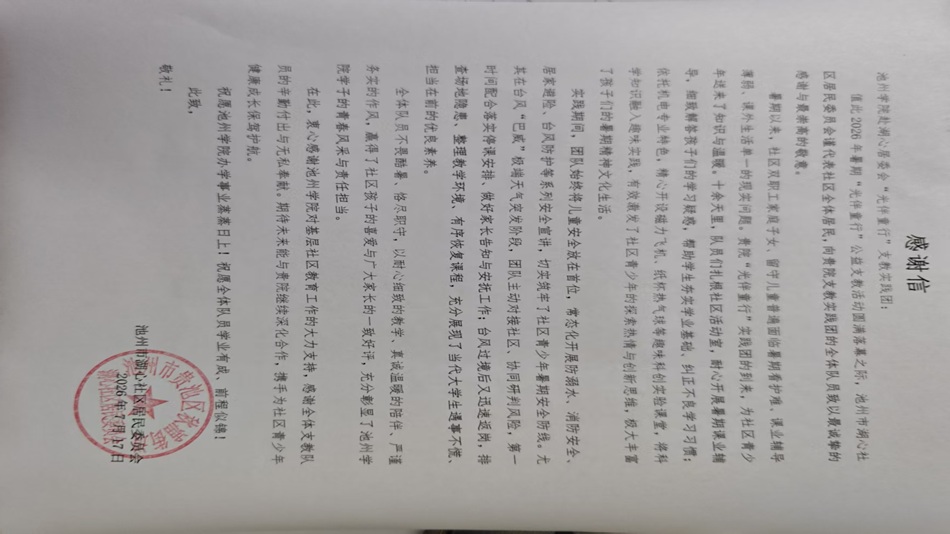 感谢信
池州学院赴湖心居委会“光伴童行”支教实践团：
值此2026年暑期“光伴童行”公益支教活动圆满落幕之际，池州市湖心社
区居民委员会谨代表社区全体居民，向贵院支教实践团的全体队员致以最诚挚的
感谢与最崇高的敬意。
暑期以来，社区双职工家庭子女、留守儿童普遍面临暑期看护难、课业辅导
薄弱、课外生活单一的现实问题。贵院“光伴童行”实践团的到来，为社区青少
年送来了知识与温暖。十余天里，队员们扎根社区活动室，耐心开展暑期课业辅
导，细致解答孩子们的学习疑惑，帮助学生夯实学业基础、纠正不良学习习惯；
依托机电专业特色，精心开设磁力飞机、纸杯热气球等趣味科创实验课堂，将科
学知识融入趣味实践，有效激发了社区青少年的探索热情与创新思维，极大丰富
了孩子们的暑期精神文化生活。
实践期间，团队始终将儿童安全放在首位，常态化开展防溺水、消防安全、
居家避险、台风防护等系列安全宣讲，切实筑牢了社区青少年暑期安全防线。尤
其在台风“巴威”极端天气突发阶段，团队主动对接社区、协同研判风险，第一
时间配合落实停课安排、做好家长告知与安抚工作；台风过境后又迅速返岗，排
查场地隐患、整理教学环境、有序恢复课程，充分展现了当代大学生遇事不慌、
担当在前的优良素养。
全体队员不畏酷暑、恪尽职守，以耐心细致的教学、真诚温暖的陪伴、严谨
务实的作风，赢得了社区孩子的喜爱与广大家长的一致好评，充分彰显了池州学
院学子的青春风采与责任担当。
在此，衷心感谢池州学院对基层社区教育工作的大力支持，感谢全体支教队
员的辛勤付出与无私奉献。期待未来能与贵院继续深化合作，携手为社区青少年
健康成长保驾护航。
祝愿池州学院办学事业蒸蒸日上！祝愿全体队员学业有成、前程似锦！
此致，
敬礼！
池州市湖心社区居民委员会
2026年7月17日